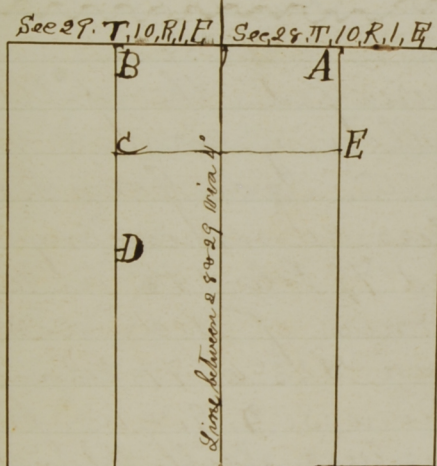 Sec 29. T, 10, R, 1, E, Sec, 28, T, 10, R, 1, E,
B A
C E
D
Line between 28 & 29 Via 4°